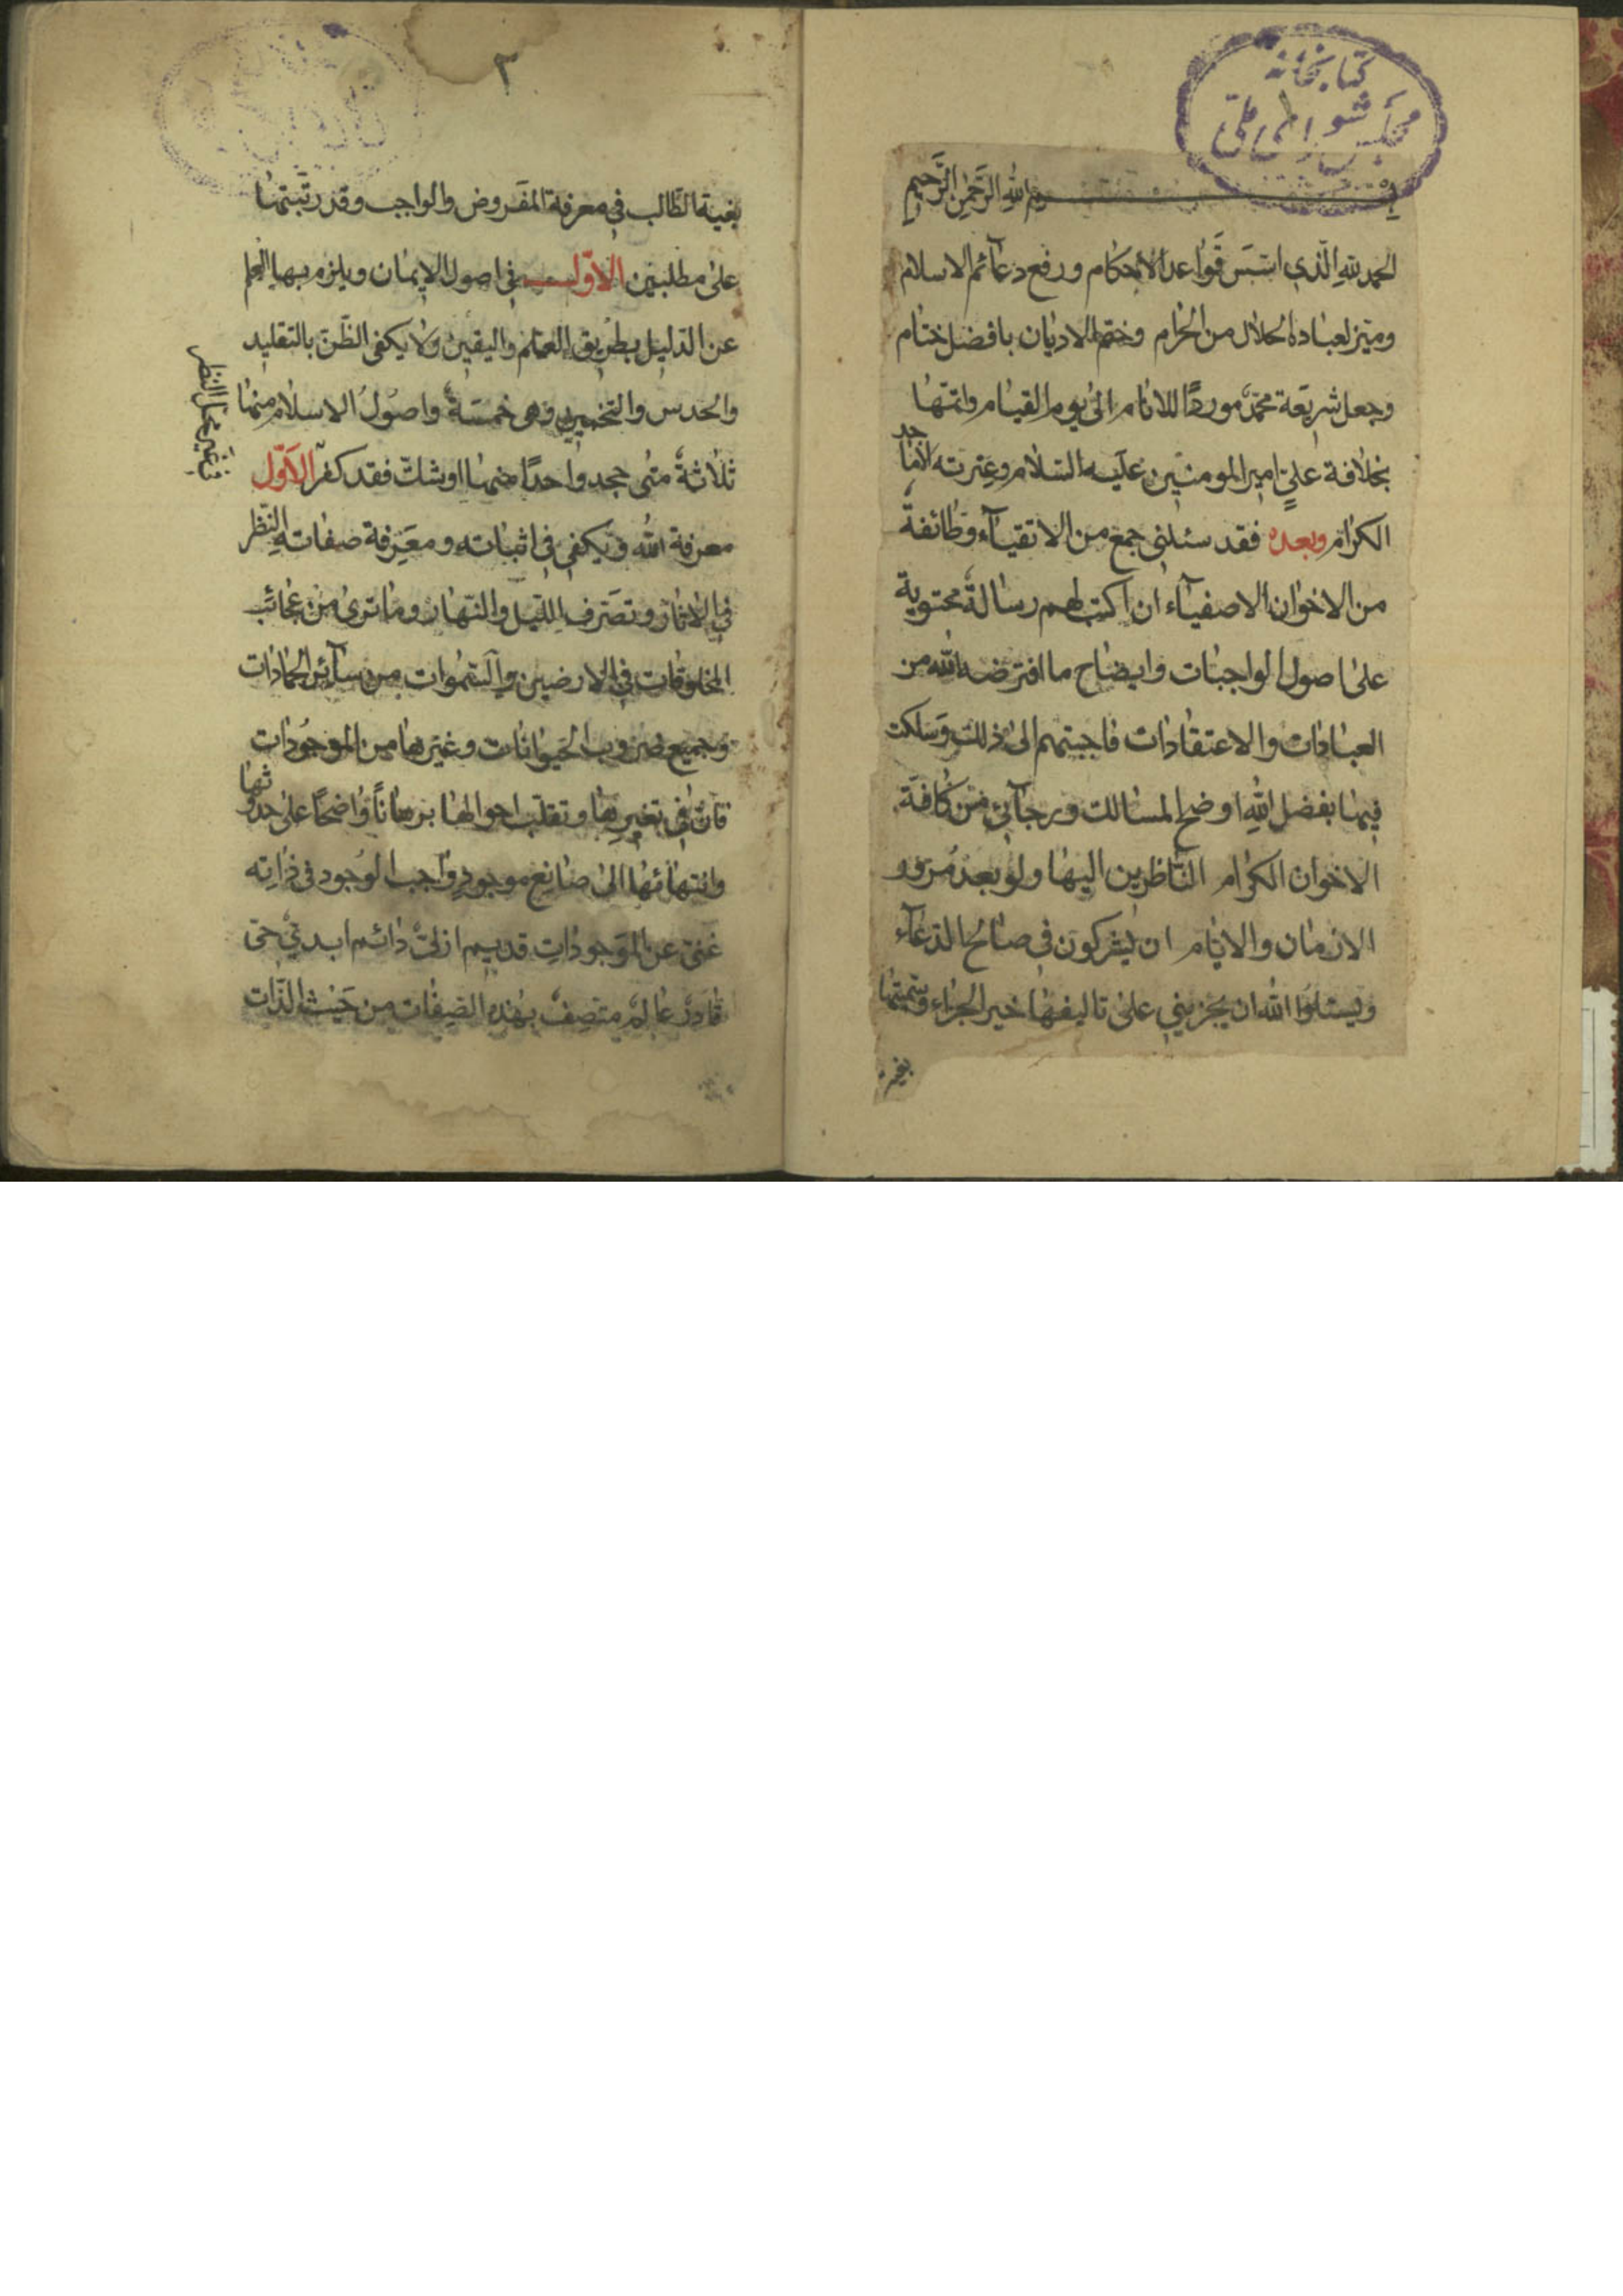 كتابخانه
مجلس شورای ملی
بسم الله الرحمن الرحيم
الحمد لله الذي اسّس قواعد الاحكام ورفع دعآئم الاسلام
وميّز لعباده الحلال من الحرام وختم الاديان بافضل ختام
وجعل شريعة محمّد موردًا للانام الى يوم القيام واتمّها
بخلافة علىٍّ امير المومنين عليه السلام وعترته الاماجد
الكرام وبعد فقد سئلنى جمع من الاتقيآء وطائفةٌ
من الاخوان الاصفيآء ان اكتب لهم رسالةً محتوية
على اصول الواجبات وايضاح ما افترضه الله من
العبادات والاعتقادات فاجبتهم الى ذلك وسلكت
فيها بفضل الله اوضح المسالك ورجآئى من كافة
الاخوان الكرام الناظرين اليها ولو بعد مرور
الازمان والايام ان يشركون فى صالح الدعآء
ويسئلوا الله ان يجزينى على تاليفها خير الجزاء وسمّيتها
بغية
٢
بغية الطّالب فى معرفة المفروض والواجب وقد رتّبتها
على مطلبين الاوّل فى اصول الايمان ويلزم بها العلم
عن الدّليل بطريق العلم واليقين ولا يكفى الظّنّ بالتقليد
والحدس والتخمين وهى خمسةٌ واصول الاسلام منها
ثلاثةٌ متى جحد واحدًا منها او شكّ فقد كفر الاوّل
معرفة الله ويكفى فى اثباته ومعرفة صفاته النّظر
فى الاثار وتصرّف الليل والنّهار وما ترى من عجائب
المخلوقات فى الارضين والسّموات من سآئر الجمادات
وجميع ضروب الحيوانات وغيرها من الموجودات
فانّ فى تغيرها وتقلّب احوالها برهانًا واضحًا على حدوثها
وانتهائها الى صانع موجودٍ واجب الوجود فى ذاته
غنى عن الموجودات قديم ازلىّ دائم ابدىّ حىّ
قادرٌ عالمٌ متّصفٌ بهذه الصّفات من حيث الذّات